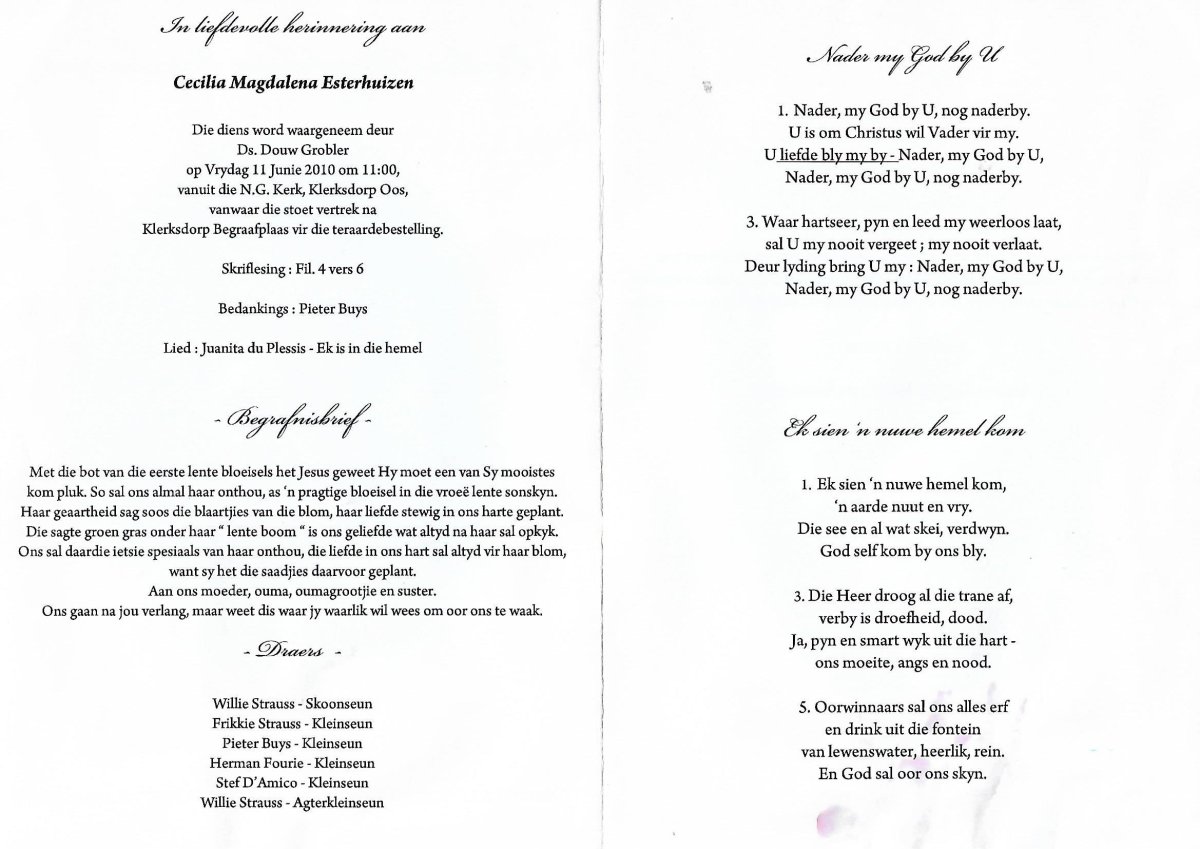 In liefdevolle herinnering aan
Cecilia Magdalena Esterhuizen
Die diens word waargeneem deur
Ds. Douw Grobler
op Vrydag 11 Junie 2010 om 11:00,
vanuit die N.G. Kerk, Klerksdorp Oos,
vanwaar die stoet vertrek na
Klerksdorp Begraafplaas vir die teraardebestelling.
Skriflesing : Fil. 4 vers 6
Bedankings : Pieter Buys
Lied : Juanita du Plessis - Ek is in die hemel
- Begrafnisbrief -
Met die bot van die eerste lente bloeisels het Jesus geweet Hy moet een van Sy mooistes
kom pluk. So sal ons almal haar onthou, as ‘n pragtige bloeisel in die vroeë lente sonskyn.
Haar geaartheid sag soos die blaartjies van die blom, haar liefde stewig in ons harte geplant.
Die sagte groen gras onder haar “ lente boom “ is ons geliefde wat altyd na haar sal opkyk.
Ons sal daardie ietsie spesiaals van haar onthou, die liefde in ons hart sal altyd vir haar blom,
want sy het die saadjies daarvoor geplant.
Aan ons moeder, ouma, oumagrootjie en suster.
Ons gaan na jou verlang, maar weet dis waar jy waarlik wil wees om oor ons te waak.
- Draers -
Willie Strauss - Skoonseun
Frikkie Strauss - Kleinseun
Pieter Buys - Kleinseun
Herman Fourie - Kleinseun
Stef D’Amico - Kleinseun
Willie Strauss - Agterkleinseun
Nader my God by U
1. Nader, my God by U, nog naderby.
U is om Christus wil Vader vir my.
U liefde bly my by - Nader, my God by U,
Nader, my God by U, nog naderby.
3. Waar hartseer, pyn en leed my weerloos laat,
sal U my nooit vergeet ; my nooit verlaat.
Deur lyding bring U my : Nader, my God by U,
Nader, my God by U, nog naderby.
Ek sien ‘n nuwe hemel kom
1. Ek sien ‘n nuwe hemel kom,
‘n aarde nuut en vry.
Die see en al wat skei, verdwyn.
God self kom by ons bly.
3. Die Heer droog al die trane af,
verby is droefheid, dood.
Ja, pyn en smart wyk uit die hart -
ons moeite, angs en nood.
5. Oorwinnaars sal ons alles erf
en drink uit die fontein
van lewenswater, heerlik, rein.
En God sal oor ons skyn.